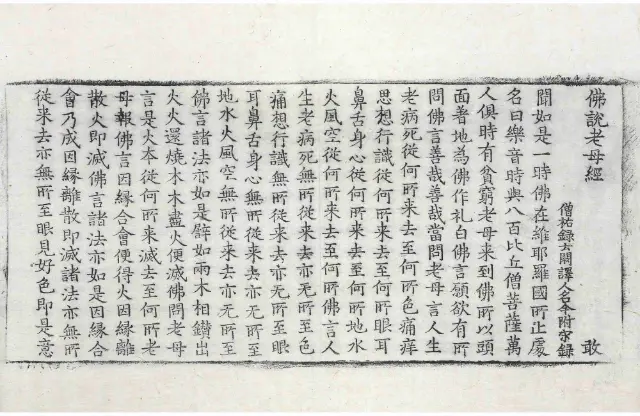 佛說老母經
僧祐錄云闕譯人名今附宋錄
敢
聞如是一時佛在維耶羅國所止處
名曰樂音時與八百比丘僧菩薩萬
人俱時有貧窮老母来到佛所以頭
面著地為佛作礼白佛言願欲有所
問佛言善哉善哉當問老母言人生
老病死從何所来去至何所色痛痒
思想行識從何所来去至何所眼耳
鼻舌身心從何所来去至何所地水
火風空從何所来去至何所佛言人
生老病死無所從来去亦无所至色
痛想行識無所從来去亦无所至眼
耳鼻舌身心無所從来去亦无所至
地水火風空無所從来去亦无所至
佛言諸法亦如是譬如兩木相鑽出
火火還燒木木盡火便滅佛問老母
言是火本從何所来滅去至何所老
母報佛言因緣合會便得火因緣離
散火即滅佛言諸法亦如是因緣合
會乃成因緣離散即滅諸法亦無所
從来去亦無所至眼見好色即是意